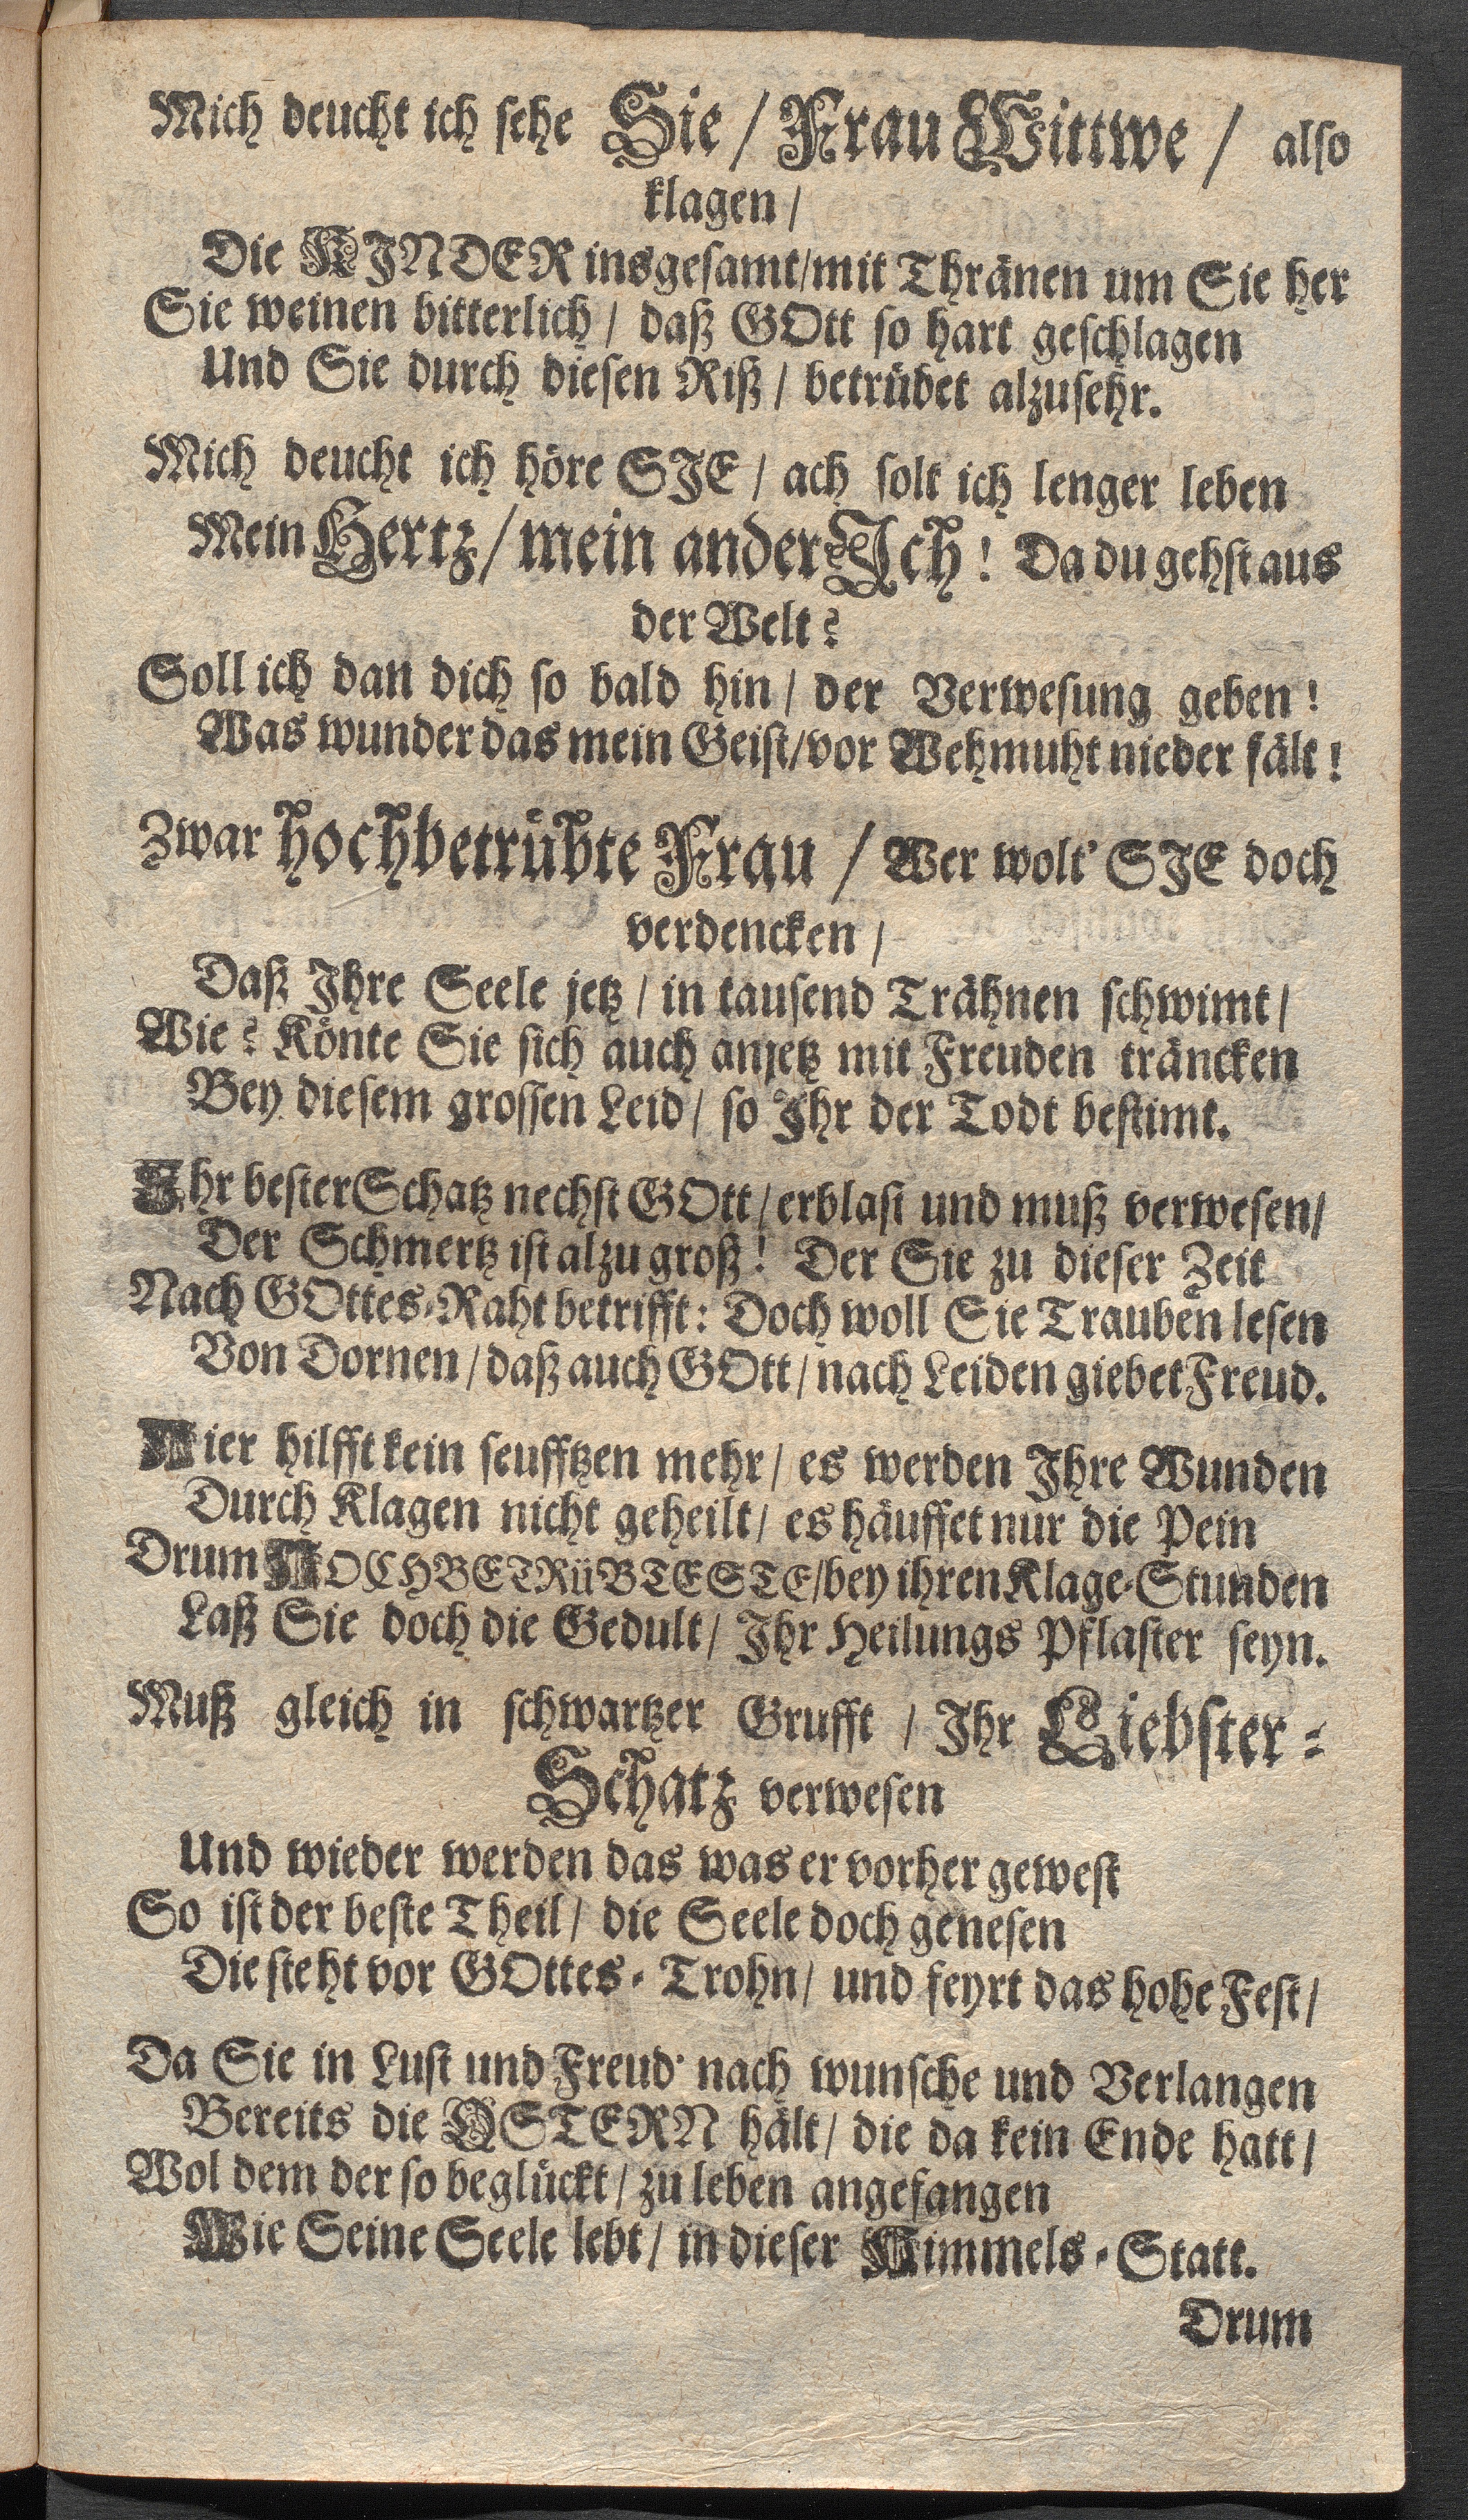 Mich deucht ich sehe Sie / Frau Wittwe / also
klagen /
Die KINDER insgesamt/mit Thränen um Sie her
Sie weinen bitterlich / daß GOtt so hart geschlagen
Und Sie durch diesen Riß / betrübet alzusehr.
Mich deucht ich höre SIE / ach solt ich lenger leben
Mein Hertz / mein ander Ich! Da du gehst aus
der Welt?
Soll ich dan dich so bald hin / der Verwesung geben!
Was wunder das mein Geist/vor Wehmuht nieder fält!
Zwar hochbetrübte Frau / Wer wolt' SIE doch
verdencken /
Daß Ihre Seele jetz / in tausend Trähnen schwimt /
Wie? Könte Sie sich auch anjetz mit Freuden träncken
Bey diesem grossen Leid / so Ihr der Todt bestimt.
Ihr bester Schatz nechst GOtt / erblast und muß verwesen /
Der Schmertz ist alzu groß! Der Sie zu dieser Zeit
Nach GOttes-Raht betrifft: Doch woll Sie Trauben lesen
Von Dornen / daß auch GOtt / nach Leiden giebet Freud.
Hier hilfft kein seufftzen mehr / es werden Ihre Wunden
Durch Klagen nicht geheilt / es häuffet nur die Pein
Drum HOCHBETRüBTESTE/bey ihren Klage-Stunden
Laß Sie doch die Gedult / Ihr Heilungs Pflaster seyn.
Muß gleich in schwartzer Grufft / Ihr Liebster-
Schatz verwesen
Und wieder werden das was er vorher gewest
So ist der beste Theil / die Seele doch genesen
Die steht vor GOttes-Trohn / und feyrt das hohe Fest /
Da Sie in Lust und Freud' nach wunsche und Verlangen
Bereits die OSTERN hält / die da kein Ende hatt /
Wol dem der so beglückt / zu leben angefangen
Wie Seine Seele lebt / in dieser Himmels-Statt.
Drum